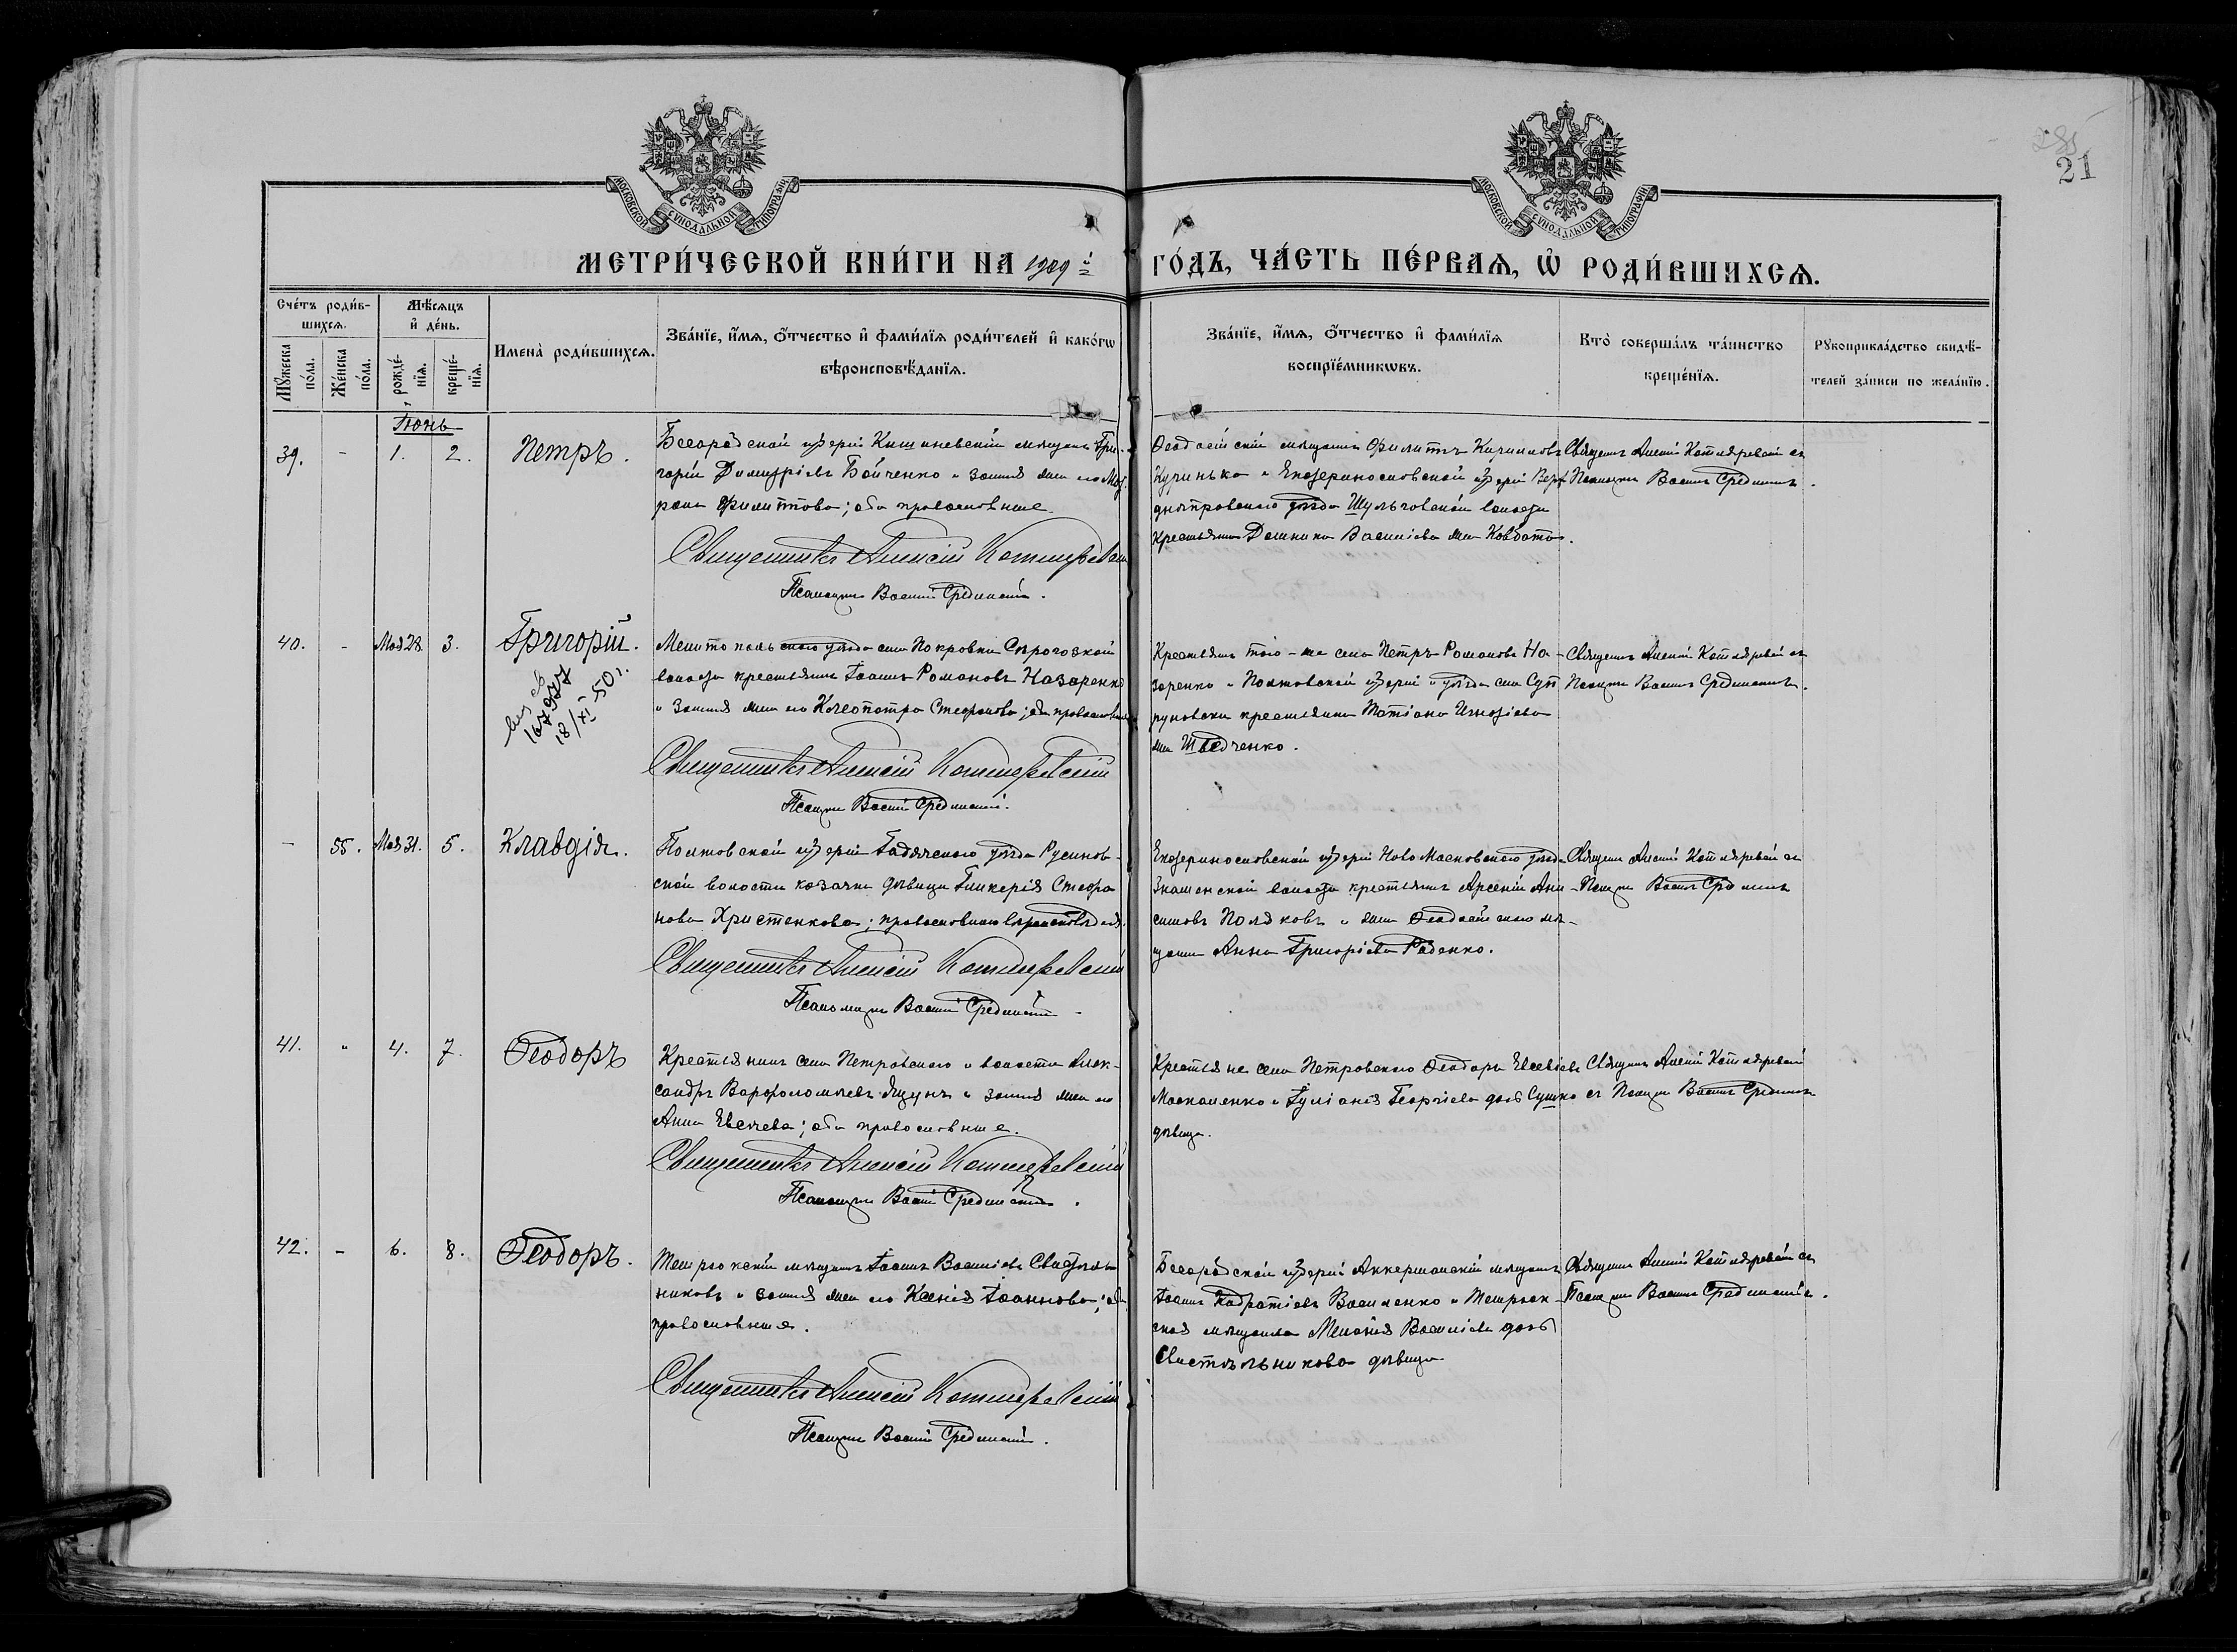 285
21
МОСКОВСКОЙ СѴНОДАЛЬНОЙ ТИПОГРАФІИ
МОСКОВСКОЙ СѴНОДАЛЬНОЙ ТИПОГРАФІИ
МЕТРИ́ЧЕСКОЙ КНИ́ГИ НА 1909 й ГО́ДЪ, ЧА́СТЬ ПЕ́РВАЯ, Ѡ҆ РОДИ́ВШИХСЯ.
Сче́тъ роди́в-
шихся.
Мꙋ́жеска по́ла.
Же́нска по́ла.
Мѣ́сяцъ
и҆ де́нь.
рожде́-нїя.
креще́-нїя.
Имена̀ роди́вшихся.
Зва́нїе, и҆́мя, ѻ҆́тчество и҆ фами́лїя роди́телей и҆ како́гѡ
вѣроисповѣ́данїя.
Зва́нїе, и҆́мя, ѻ҆́тчество и҆ фами́лїя
воспрїе́мникѡвъ.
Кто̀ соверша́лъ та́инство
креще́нїя.
Рꙋкоприкла́дство свидѣ́-
телей за́писи по жела́нїю.
Іюнь
39. - 1. 2. Петръ.
Бессарабской губерніи Кишиневскій мѣщанинъ Гри-
горій Димитріевъ Бойченко и законная жена его
Филиппова; оба православные
Священникъ Алексій Котляревскій
Псаломщикъ Василій Срединскій.
Ѳеодосійскій мѣщанинъ Филиппъ Кирилловъ
Куринько и Екатеринославской губерніи Верх-
днѣпровскаго уѣзда Шульговской волости
крестьянка Домника Васильева Ковбаса.
Священникъ Алексій Котляревскій съ
Псаломщикомъ Василіемъ Срединскимъ.
40. - Мая 28. 3. Григорій.
выд св
167977
18/XI 50 г.
Мелитопольскаго уѣзда села Покровки Сѣрогозской
волости крестьянинъ Іоаннъ Романовъ Назаренко
и законная жена его Клеопатра Стефанова; оба православные
Священникъ Алексій Котляревскій
Псаломщикъ Василій Срединскій.
Крестьянинъ того-же села Петръ Романовъ На-
заренко и Полтавской губерніи и уѣзда села Суп
руновки крестьянка Татіана Игнатіева
Шведченко.
Священникъ Алексій Котляревскій съ
Псаломщикомъ Василіемъ Срединскимъ.
- 55. Мая 31. 5. Клавдія.
Полтавской губерніи Гадячскаго уѣзда Русинов-
ской волости козачка дѣвица Гликерія Стефа
нова Христенкова; православнаго вѣроисповѣданія.
Священникъ Алексій Котляревскій
Псаломщикъ Василій Срединскій
Екатеринославской губерніи Ново Московскаго уѣзда
Знаменской волости крестьянинъ Арсеній Ани-
симовъ Поляковъ и жена Ѳеодосійскаго мѣ-
щанина Анна Григоріева Раденко.
Священникъ Алексій Котляревскій съ
Псаломщикомъ Василіемъ Срединскимъ
41. " 4. 7. Ѳеодоръ
Крестьянинъ села Петровскаго и волости Алек-
сандръ Варфоломеевъ Яцунъ и законная жена его
Анна Евсеева; оба православные.
Священникъ Алексій Котляревскій
Псаломщикъ Василій Срединскій.
Крестьяне села Петровскаго Ѳеодоръ Евсевіевъ
Москаленко и Іуліанія Георгіева дочь Сушко
дѣвица.
Священникъ Алексій Котляревскій
съ Псаломщикомъ Василіемъ Срединскимъ
42. - 6. 8. Ѳеодоръ.
Темрюкскій мѣщанинъ Іоаннъ Васильевъ Свистѣль-
никовъ и законная жена его Ксенія Іоаннова; оба
православные.
Священникъ Алексій Котляревскій
Псаломщикъ Василій Срединскій.
Бессарабской губерніи Аккерманскій мѣщанинъ
Іоаннъ Кодратіевъ Василенко и Темрюк-
ская мѣщанка Меланія Васильева дочь
Свистѣльникова дѣвица
Священникъ Алексій Котляревскій съ
Псаломщикомъ Василіемъ Срединскимъ.